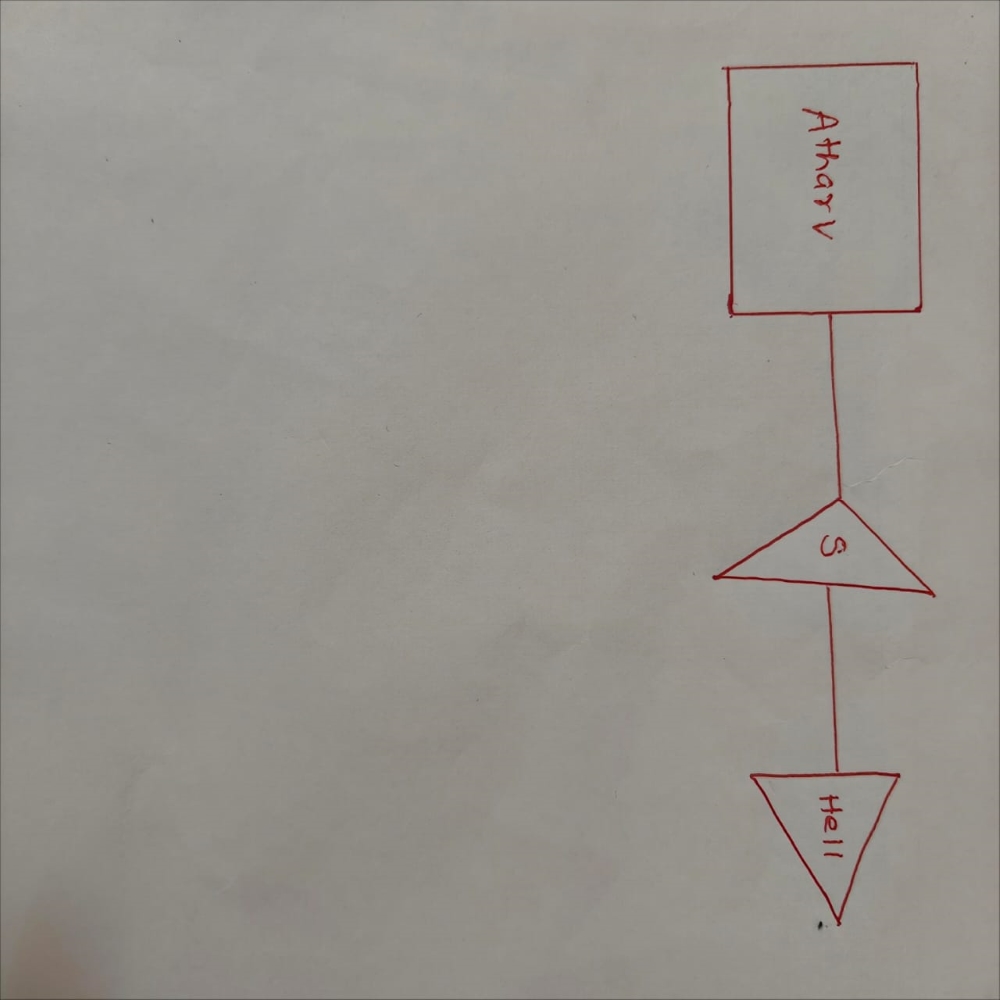 Atharv
S
Hell